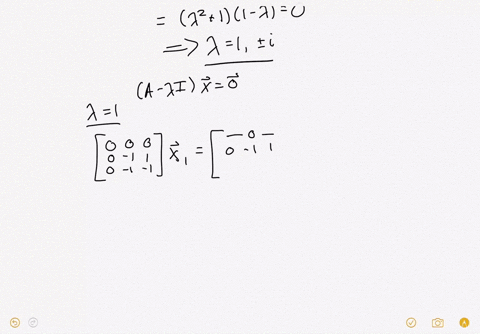 = (λ²+1)(1-λ)=0
⟹ λ=1, ±i
(A-λI) x⃗=0⃗
λ=1
[0 0 0
0 -1 1
0 -1 -1] x⃗₁ = [— 0 —
0 -1 1
A